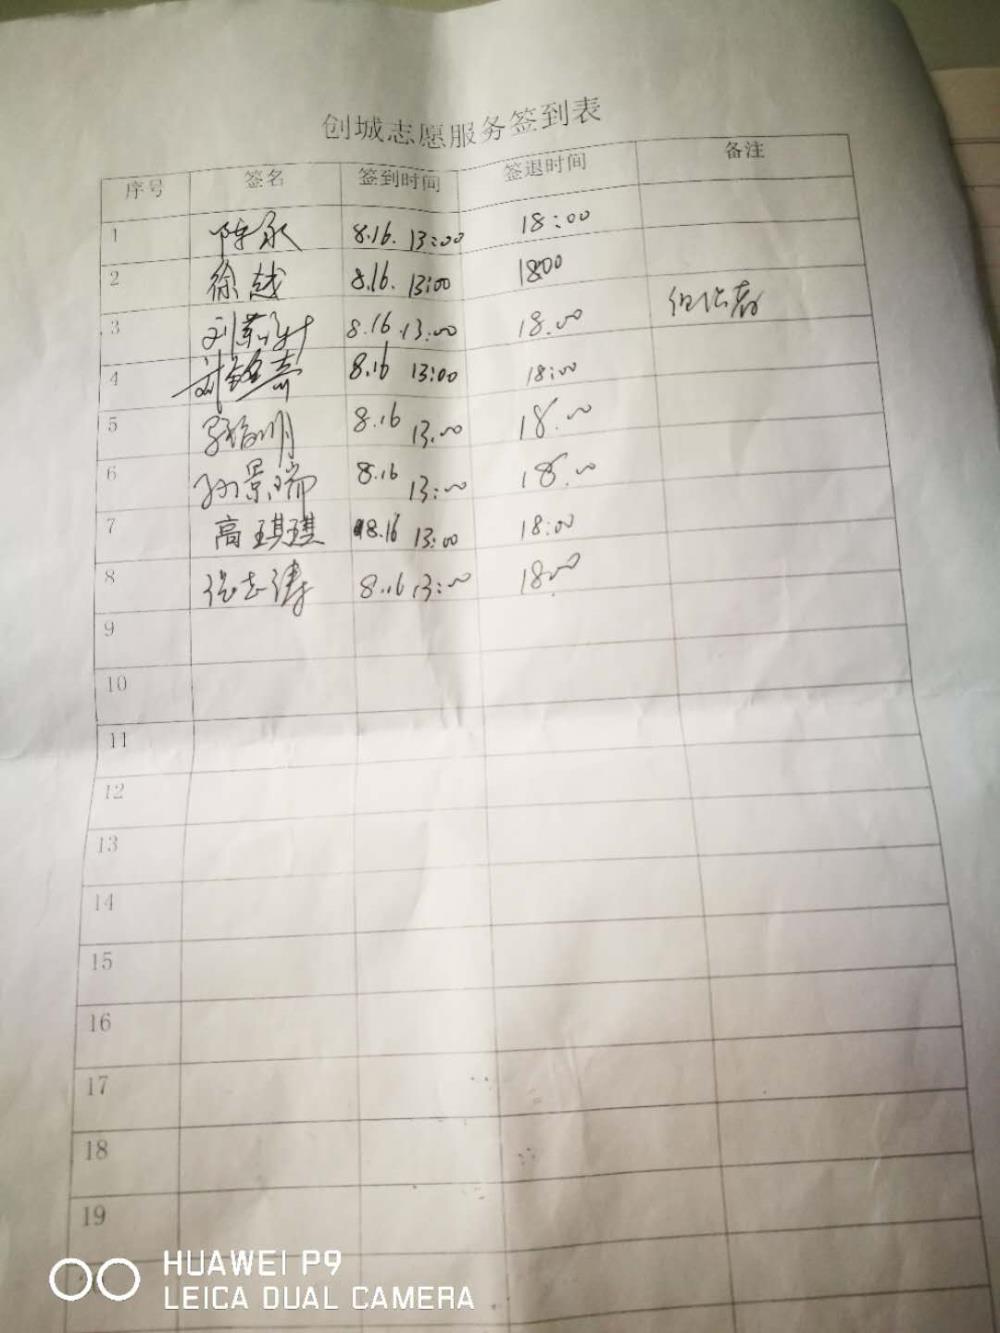 创城志愿服务签到表
序号 签名 签到时间 签退时间 备注
1 陈永 8.16. 13:00 18:00
2 徐越 8.16. 13:00 18:00
3 8.16 13:00 18:00
4 8.16 13:00 18:00
5 8.16 13:00 18:00
6 孙景瑞 8.16 13:00 18:00
7 高琪琪 8.16 13:00 18:00
8 8.16 13:00 18:00
9
10
11
12
13
14
15
16
17
18
19
HUAWEI P9
LEICA DUAL CAMERA